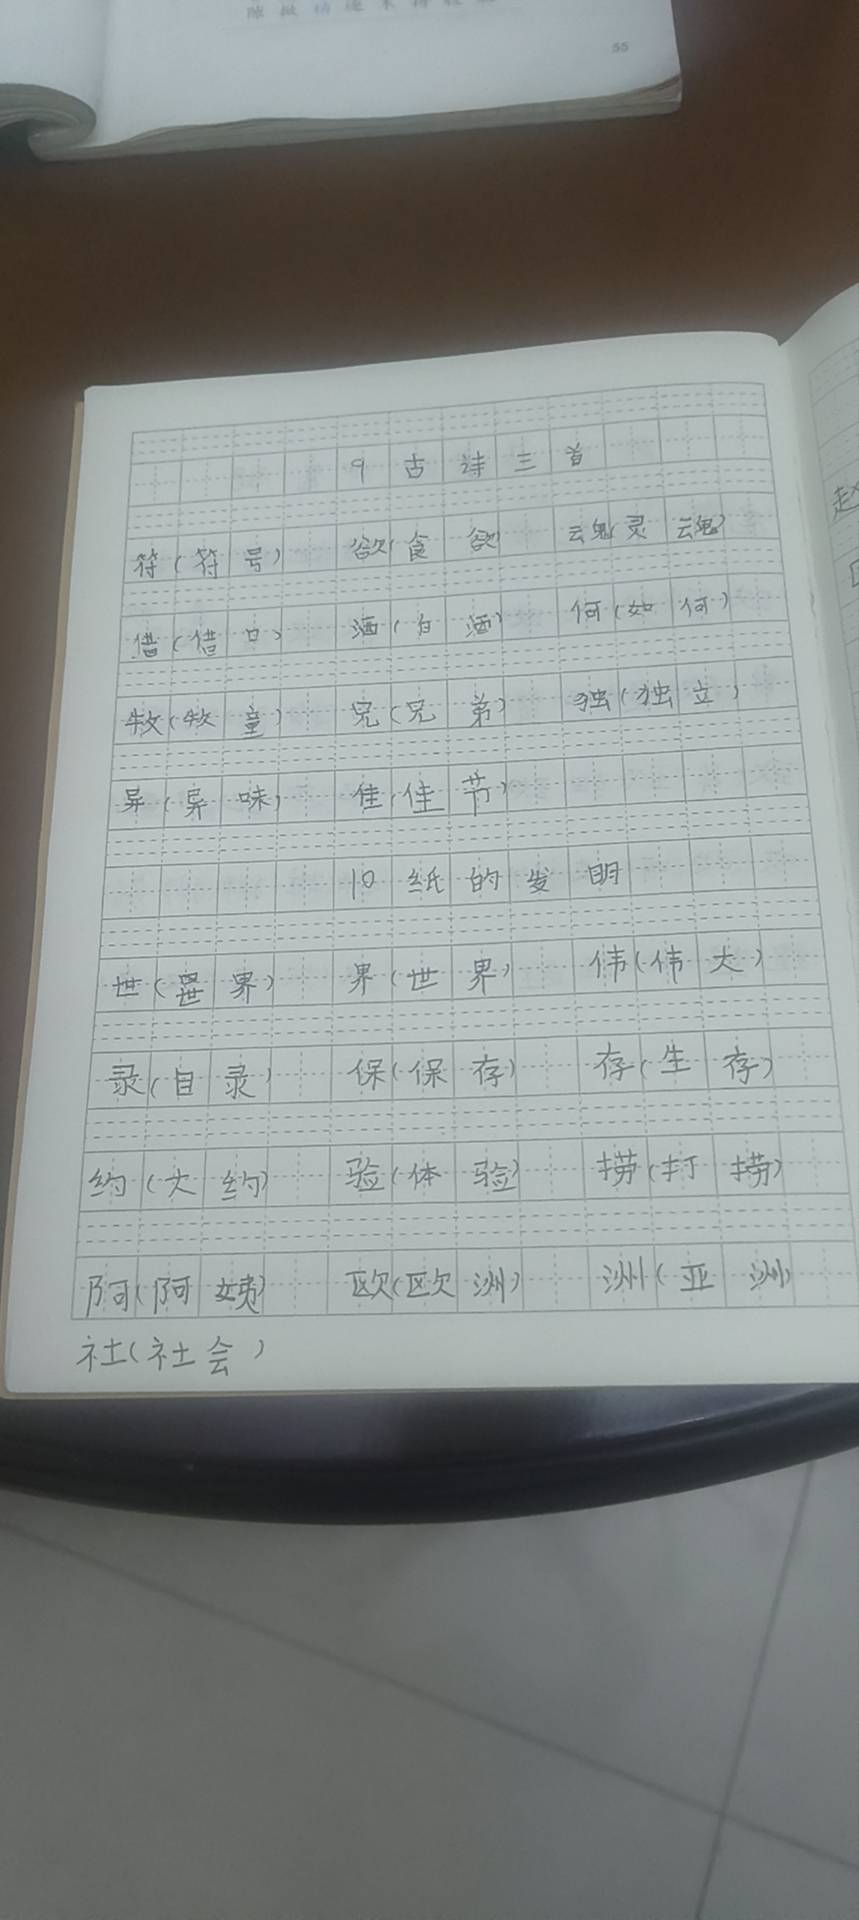 55
9古诗三首
符(符号) 欲(食欲) 魂(灵魂)
借(借口) 酒(白酒) 何(如何)
牧(牧童) 兄(兄弟) 独(独立)
异(异味) 佳(佳节)
10纸的发明
世(世界) 界(世界) 伟(伟大)
录(目录) 保(保存) 存(生存)
约(大约) 验(体验) 捞(打捞)
阿(阿姨) 欧(欧洲) 洲(亚洲)
社(社会)